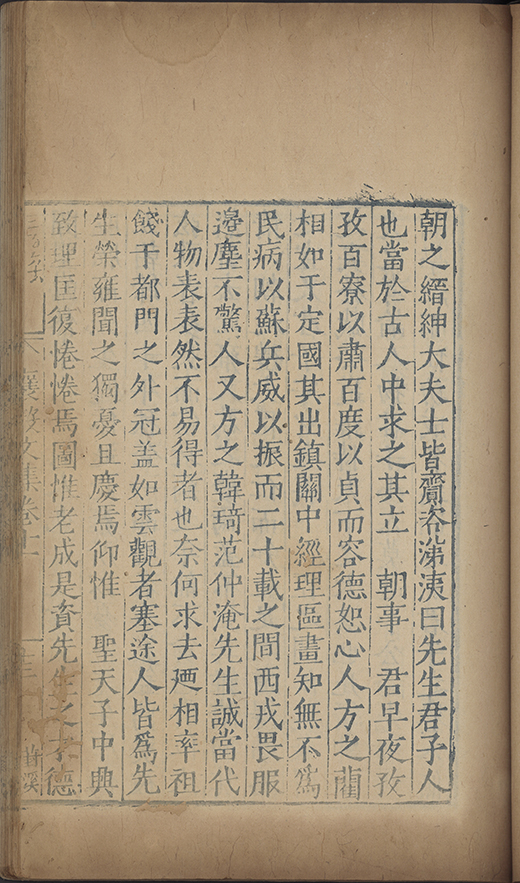 朝之縉紳大夫士皆齎咨涕洟曰先生君子人
也當於古人中求之其立　朝事　君早夜孜
孜百寮以肅百度以貞而容德恕心人方之藺
相如于定國其出鎮關中經理區畫知無不爲
民病以蘇兵威以振而二十載之間西戎畏服
邊塵不驚人又方之韓琦范仲淹先生誠當代
人物表表然不易得者也奈何求去廼相率祖
餞于都門之外冠盖如雲觀者塞途人皆爲先
生榮雍聞之獨憂且慶焉仰惟　聖天子中興
致理匡復惓惓焉圖惟老成是資先生之才德
襄毅文集卷十一